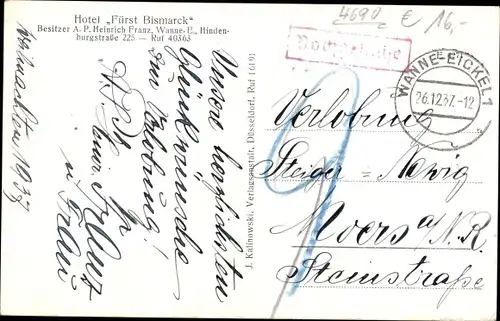 Hotel „Fürst Bismarck"
Besitzer A. P. Heinrich Franz, Wanne-E., Hinden-
burgstraße 225 — Ruf 40363
Weihnachten 1937
Unsere herzlichsten
Glückwünsche
zur Verlobung!
Franz
u. Frau
J. Kalinowski, Verlagsanstalt, Düsseldorf, Ruf 16491
4690 € 16,-
Nachgebühr
WANNE-EICKEL 1
26.12.37.-12
9
Verlobung
Steiger -
Moers a/N.R.
Steinstraße